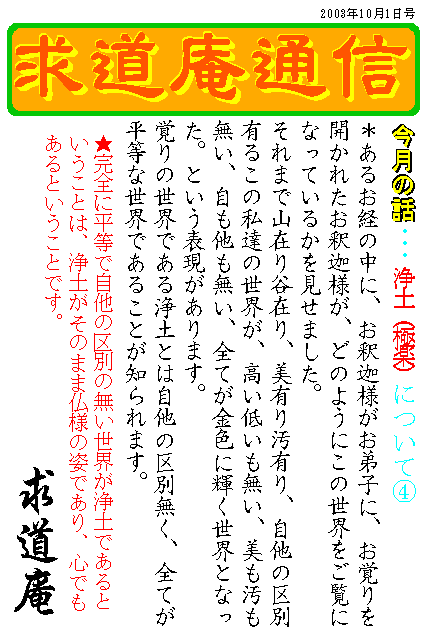 2003年10月1日号
求道庵通信
今月の話・・・浄土（極楽）について④
＊あるお経の中に、お釈迦様がお弟子に、お覚りを
開かれたお釈迦様が、どのようにこの世界をご覧に
なっているかを見せました。
それまで山在り谷在り、美有り汚有り、自他の区別
有るこの私達の世界が、高い低いも無い、美も汚も
無い、自も他も無い、全てが金色に輝く世界となっ
た。という表現があります。
覚りの世界である浄土とは自他の区別無く、全てが
平等な世界であることが知られます。
★完全に平等で自他の区別の無い世界が浄土であると
いうことは、浄土がそのまま仏様の姿であり、心でも
あるということです。
求道庵